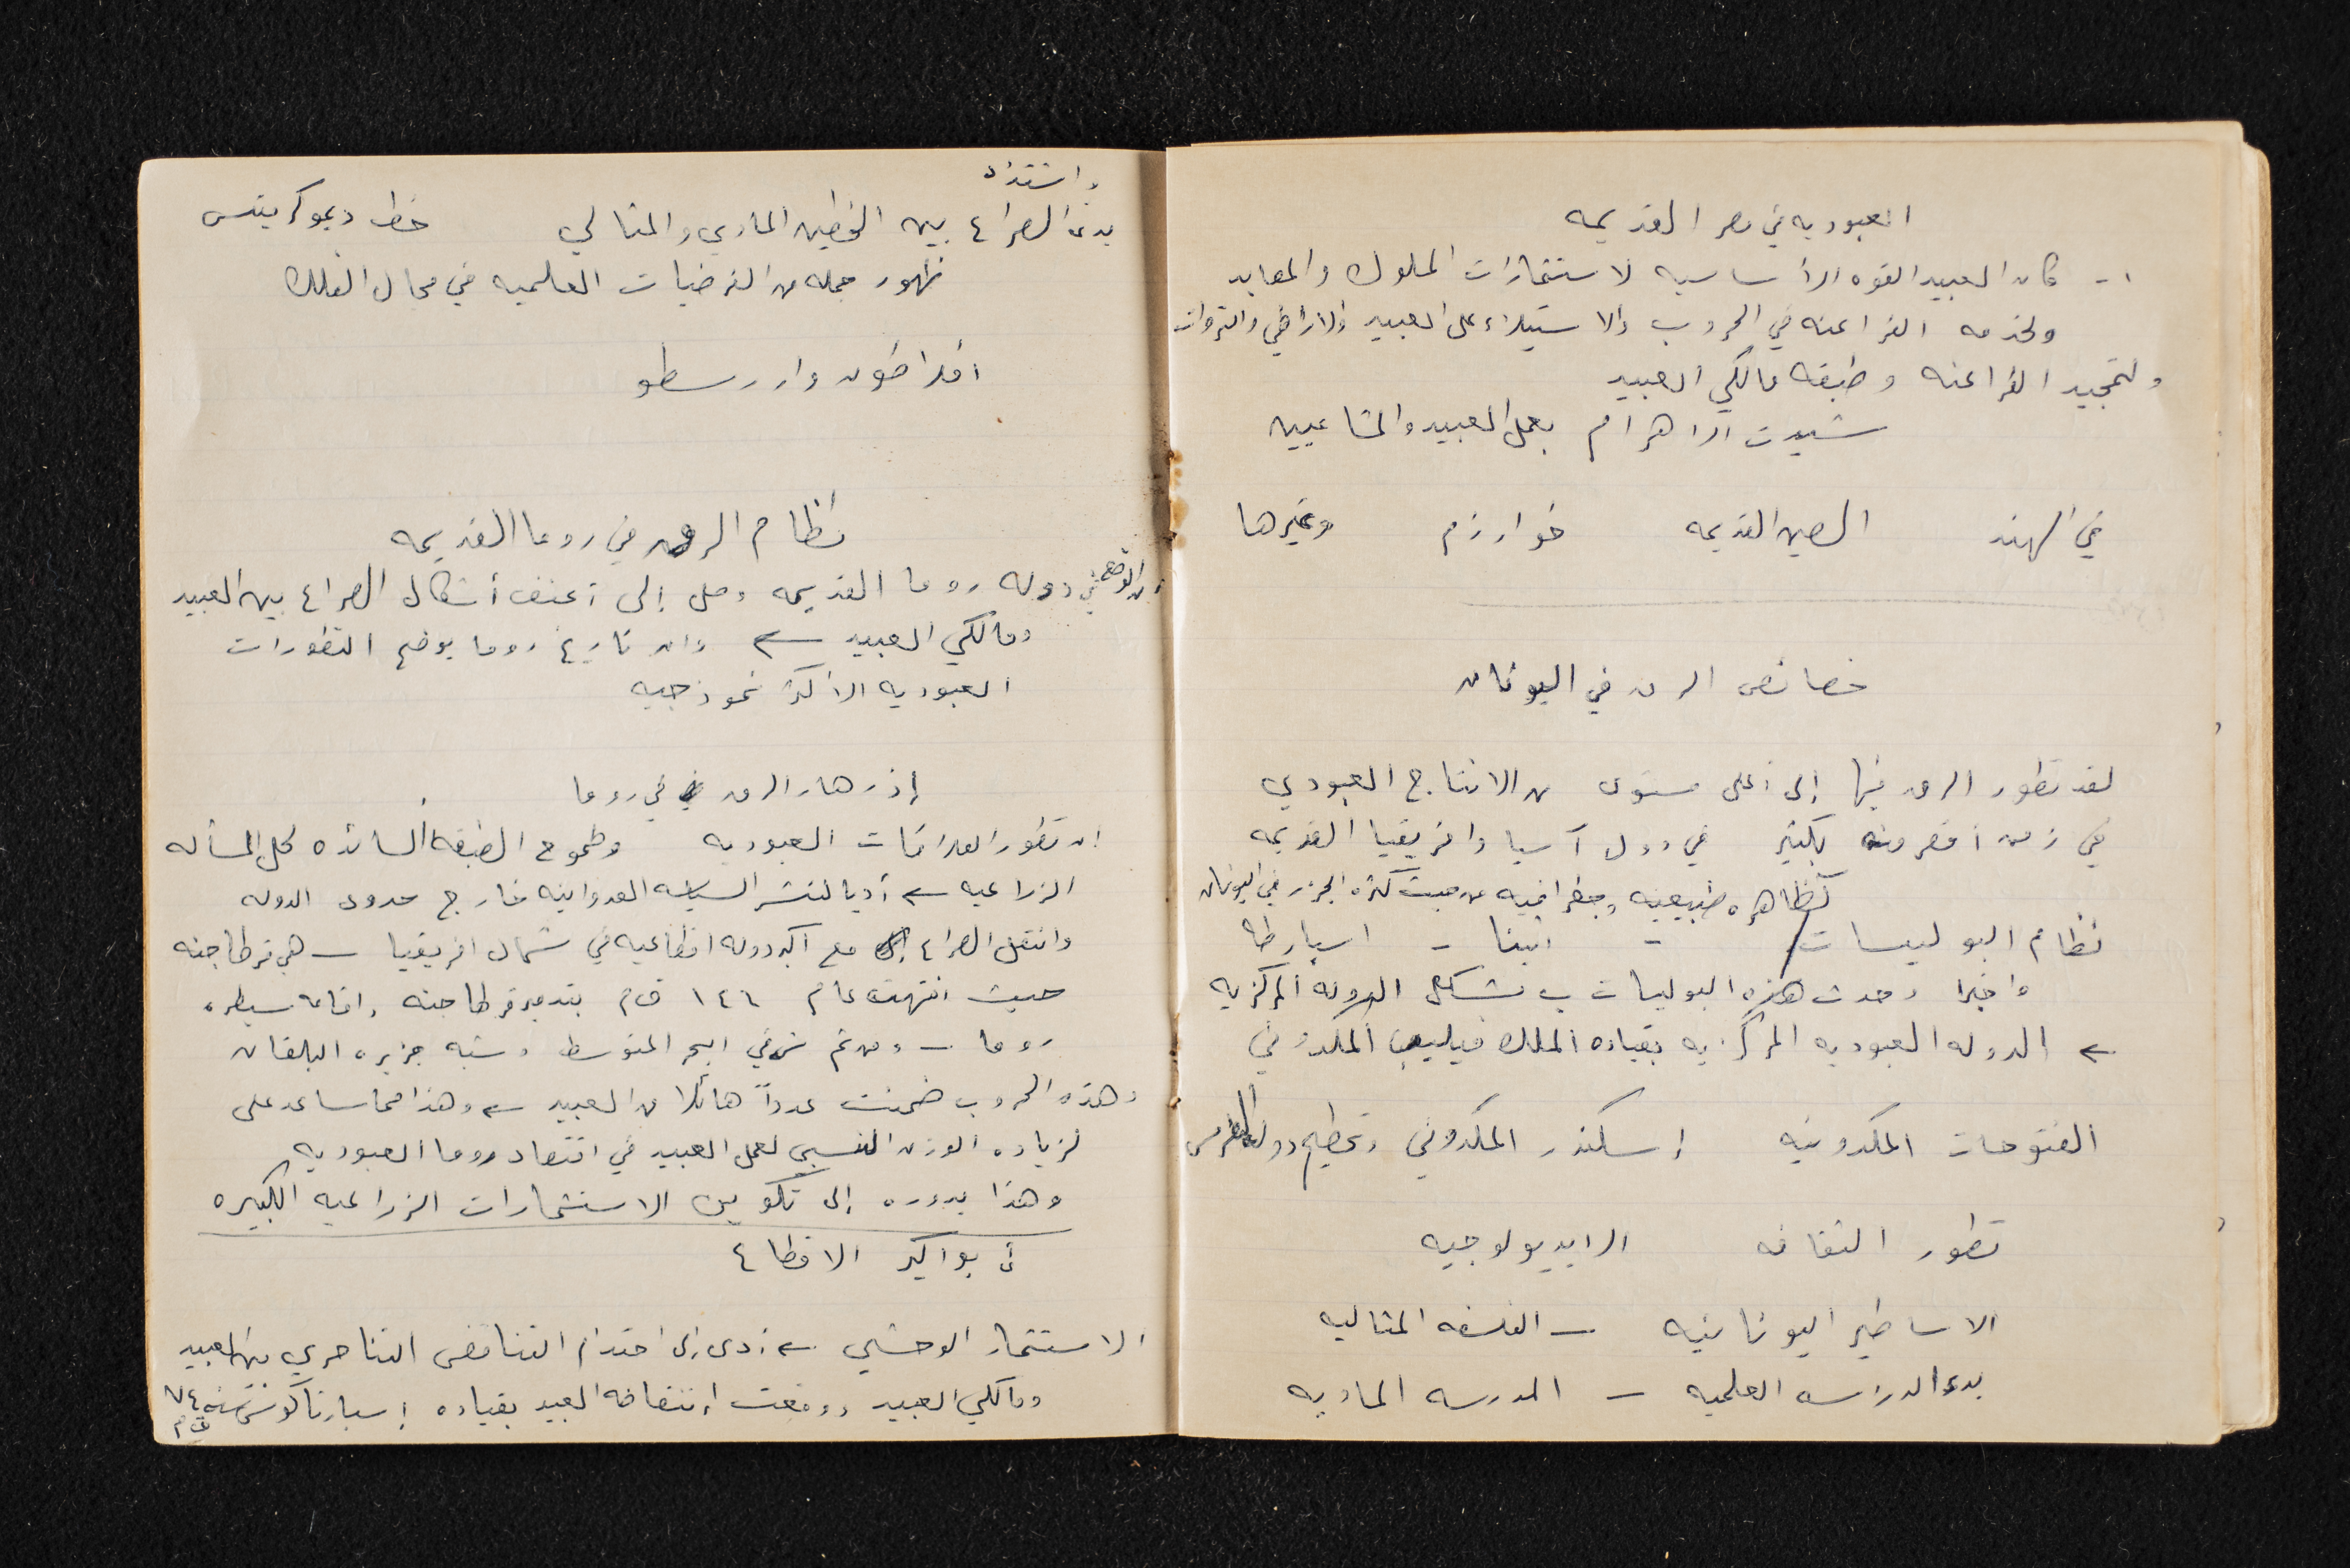 العبوديه في مصر القديمه
١- كان العبيد القوه الأساسيه لاستثمارات الملوك والمعابد
ولخدمه الفراعنه في الحروب والاستيلاء على العبيد والأراضي والثروات
ولتمجيد الفراعنه وطبقه مالكي العبيد
شيدت الاهرام بعمل العبيد والمشاعيين
في الهند الصين القديمه خوارزم وغيرها
خصائص الرق في اليونان
لقد تطور الرق فيها إلى أعلى مستوى من الانتاج العبودي
في زمن أقصر منه بكثير في دول آسيا وافريقيا القديمه
كظاهره طبيعيه وجغرافيه من حيث كثره الجزر في اليونان
نظام البوليسات - اثينا - اسبارطه
واخيرا وحدت هذه البوليسات بشكل الدوله المركزيه
← الدوله العبوديه المركزيه بقياده الملك فيليب المكدوني
الفتوحات المكدونيه إسكندر المكدوني وتحطيم دوله الفرس
تطور الثقافه الايديولوجيه
الاساطير اليونانيه - الفلسفه المثاليه
بدء الدراسه العلميه - المدرسه الماديه
واشتداد
بدء الصراع بين الخطين المادي والمثالي خط ديموكريتس
ظهور جمله من الفرضيات العلميه في مجال الفلك
افلاطون وارسطو
نظام الرق في روما القديمه
دوله روما القديمه وصل إلى أعنف أشكال الصراع بين العبيد
ومالكي العبيد ← وان تاريخ روما يوضح التطورات
العبوديه الأكثر نموذجيه
إزدهار الرق في روما
ان تطور العلاقات العبوديه وطموح الطبقه السائده لحل المسأله
الزراعيه ← أديا لنشر السياسه العدوانيه خارج حدود الدوله
وانتقل الصراع مع اكبر دوله اقطاعيه في شمال افريقيا - هي قرطاجنه
حيث انتهت عام ١٤٦ ق م بتدمير قرطاجنه واقامه سيطره
روما - ومن ثم في البحر المتوسط وشبه جزيره البلقان
وهذه الحروب ضمنت عدداً هائلا من العبيد ← وهذا مما ساعد على
لزياده الوزن النسبي لعمل العبيد في اقتصاد روما العبوديه
وهذا بدوره إلى تكوين الاستثمارات الزراعيه الكبيره
أي بواكير الاقطاع
الاستثمار الوحشي ← أدى إلى احتدام التناقض التناحري بين العبيد
ومالكي العبيد ووقعت إنتفاضه العبيد بقياده إسبارتاكوس سنه ٧٤
ق م